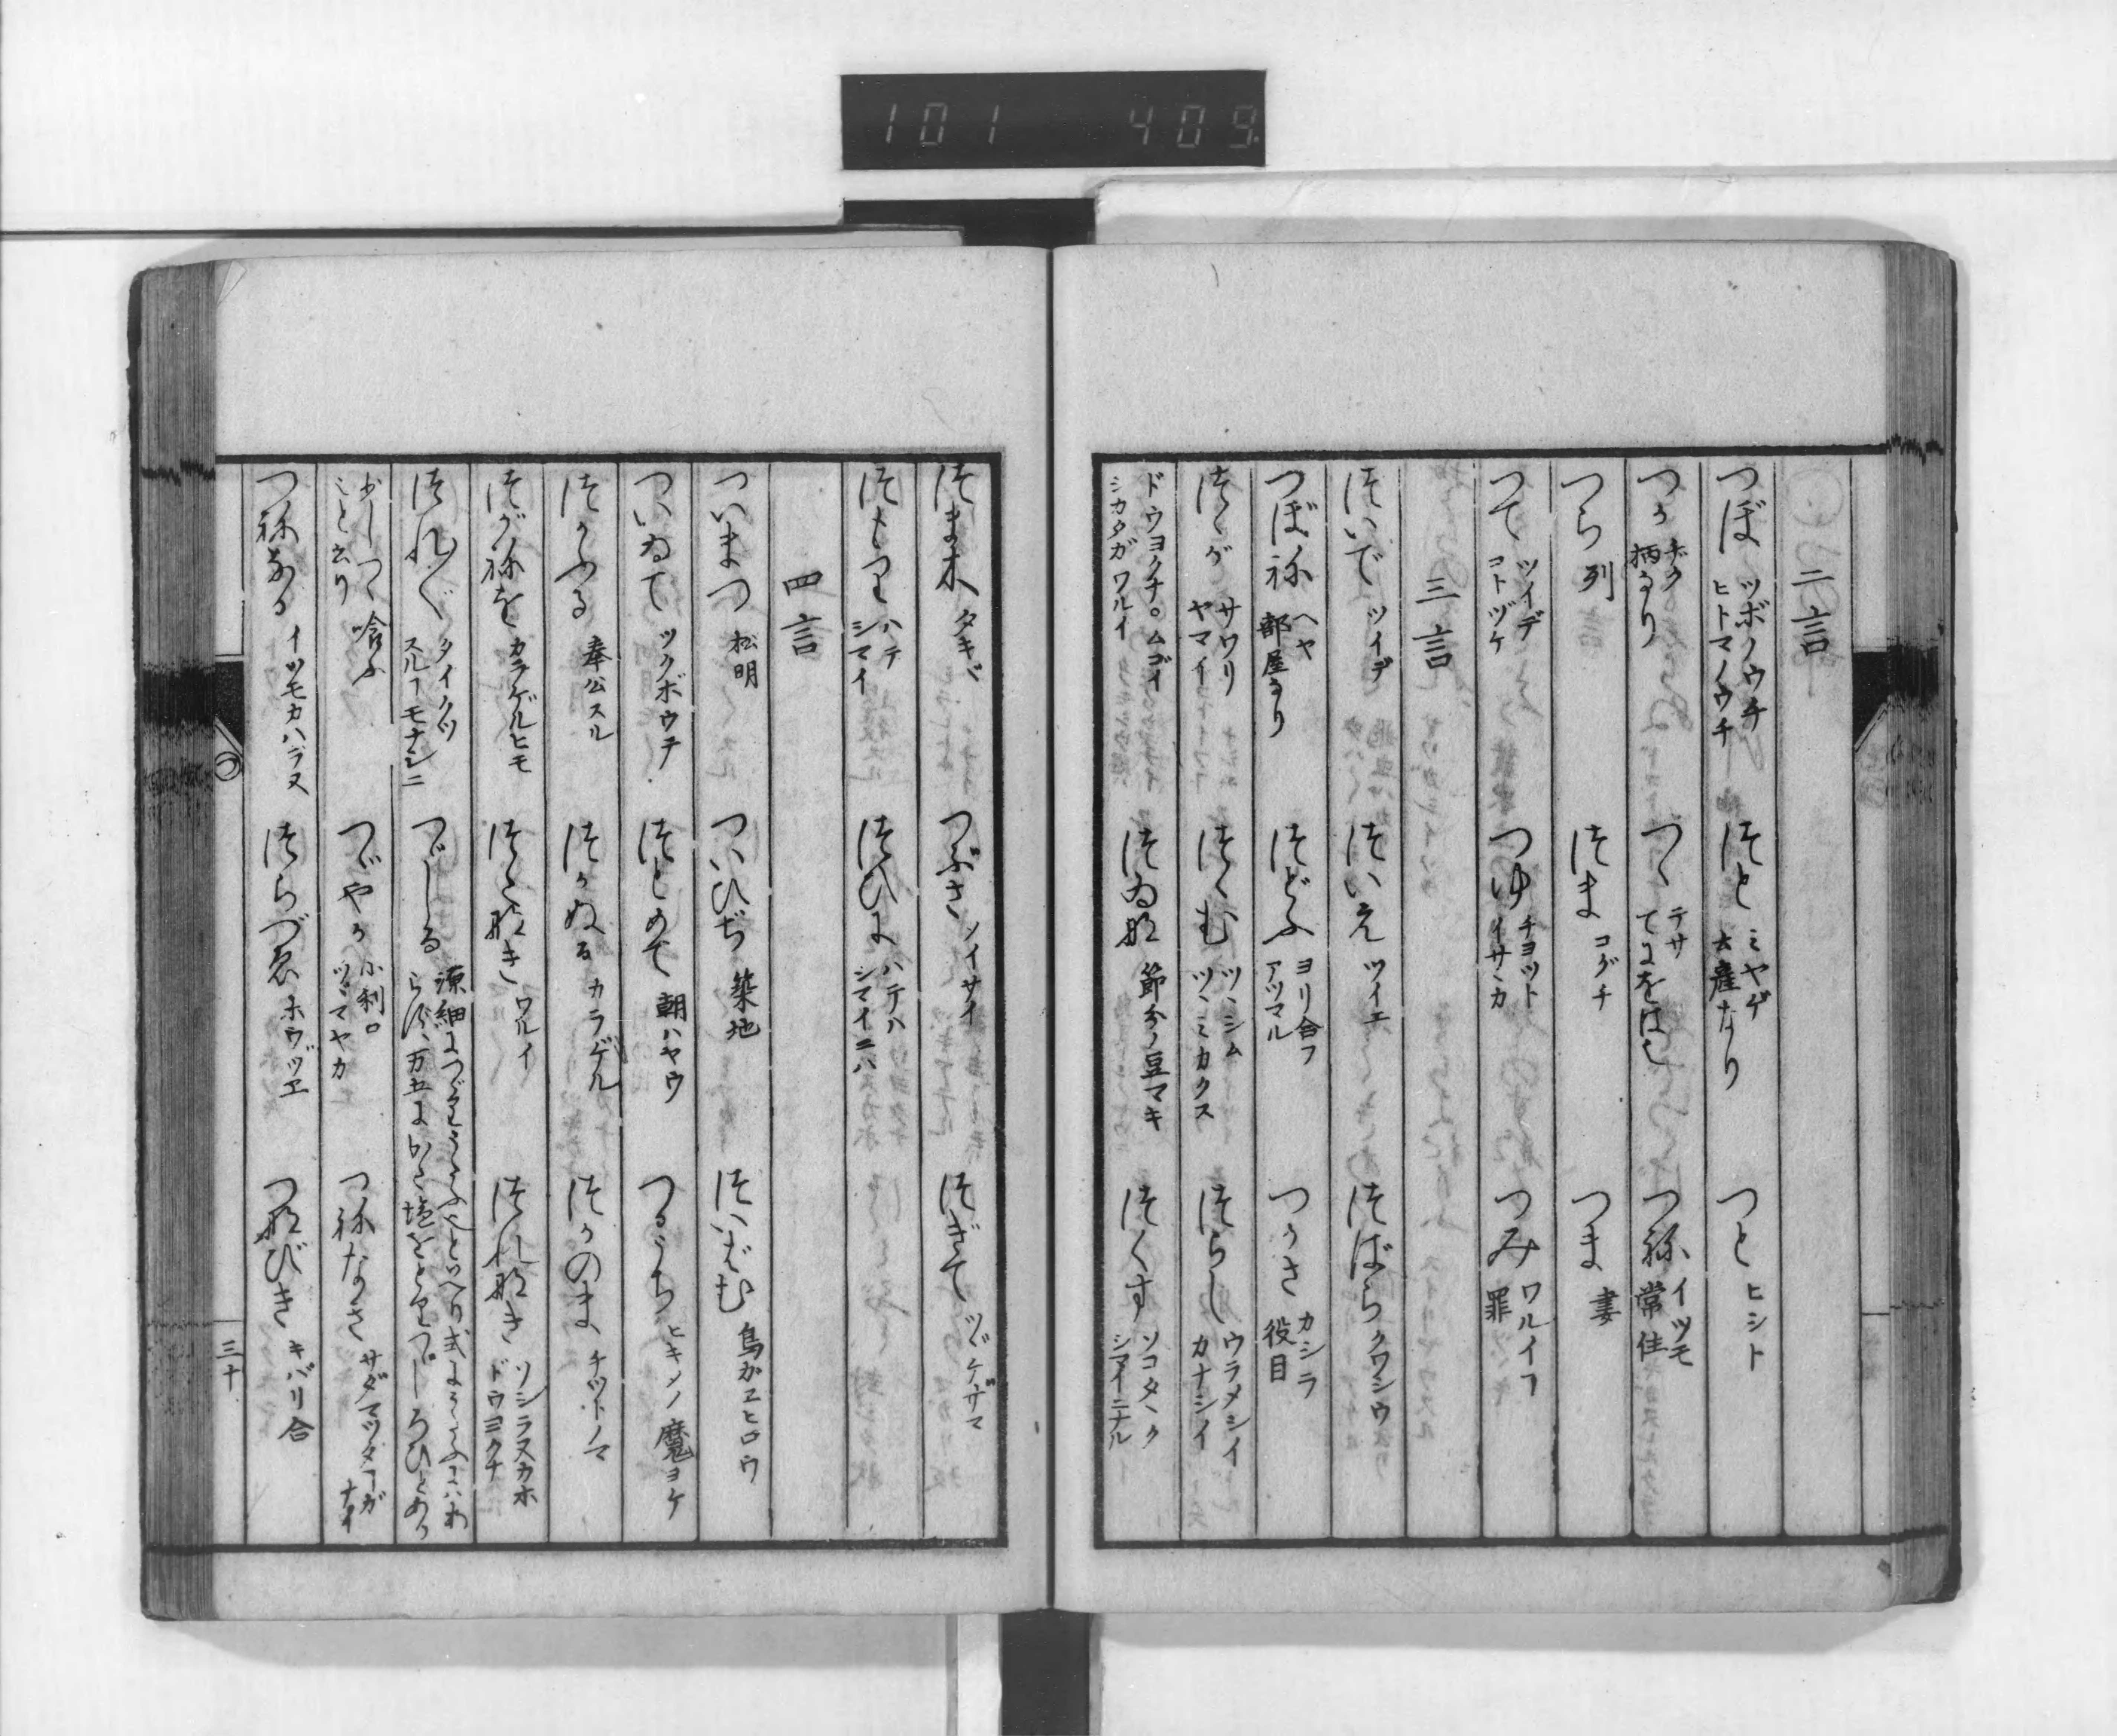 101 409
二言
つぼ ツボノウチ ヒトマノウチ つと ミヤゲ 土産なり つと ヒシト
つか ホク 柄なり つゝ テサ てにをは也 つね イツモ 常住
つら 列 つま コグチ つま 妻
つて ツイデ コトヅケ つゆ チヨツト イサヽカ つみ ワルイヿ 罪
三言
ついで ツイデ ついえ ツイエ つばら クワシウ
つぼね ヘヤ 部屋なり つどふ ヨリ合フ アツマル つかさ カシラ 役目
つゝが サワリ ヤマイ つゝむ ツヽシム ツヽミカクス つらし ウラメシイ カナシイ
ドウヨクナ。ムゴイ シカタガワルイ つゐな 節分ノ豆マキ つくす ソコタヽク シマイニナル
つま木 タキヾ つぶさ ソイサイ つぎて ツヾケザマ
つもり ハテ シマイ つひに ハテハ シマイニハ
四言
ついまつ 松明 ついひぢ 築地 ついばむ 鳥カヱヒロウ
ついゐて ツクボウテ つとめて 朝ハヤウ つるうち ヒキメノ魔ヨケ
つかふる 奉公スル つかぬる カラゲル つかのま チヤツトノマ
つがねを カラゲルヒモ つたなき ワルイ つれなき ソシラヌカホ ドウヨクナ
つれ〴〵 タイクツ スルヿモナシニ つゞしる
少しつゝ喰ふ こと云り つゞやか 小利口 ツヾマヤカ つねなき サダマツタヿガナイ
つねなる イツモカハラヌ つらづゑ ホウヅヱ つなびき キバリ合
つ
三十